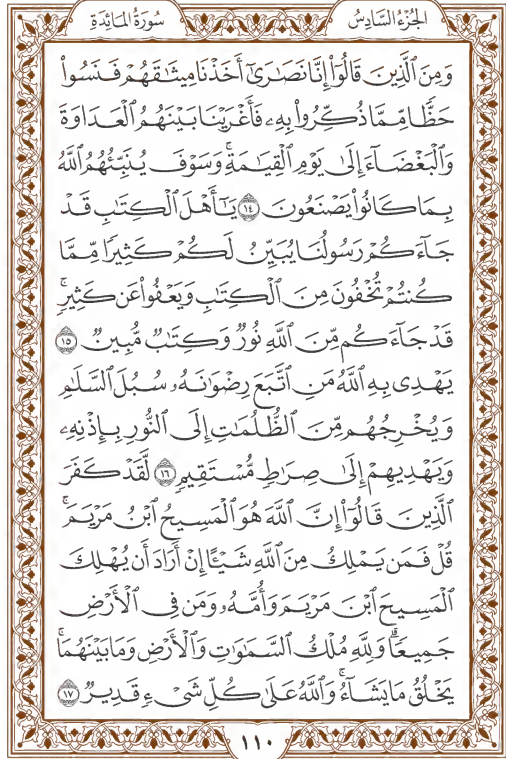 الجزء السادس سورة المائدة
وَمِنَ ٱلَّذِينَ قَالُوٓاْ إِنَّا نَصَٰرَىٰٓ أَخَذۡنَا مِيثَٰقَهُمۡ فَنَسُواْ
حَظّٗا مِّمَّا ذُكِّرُواْ بِهِۦ فَأَغۡرَيۡنَا بَيۡنَهُمُ ٱلۡعَدَاوَةَ
وَٱلۡبَغۡضَآءَ إِلَىٰ يَوۡمِ ٱلۡقِيَٰمَةِۚ وَسَوۡفَ يُنَبِّئُهُمُ ٱللَّهُ
بِمَا كَانُواْ يَصۡنَعُونَ ١٤ يَٰٓأَهۡلَ ٱلۡكِتَٰبِ قَدۡ
جَآءَكُمۡ رَسُولُنَا يُبَيِّنُ لَكُمۡ كَثِيرٗا مِّمَّا
كُنتُمۡ تُخۡفُونَ مِنَ ٱلۡكِتَٰبِ وَيَعۡفُواْ عَن كَثِيرٖۚ
قَدۡ جَآءَكُم مِّنَ ٱللَّهِ نُورٞ وَكِتَٰبٞ مُّبِينٞ ١٥
يَهۡدِي بِهِ ٱللَّهُ مَنِ ٱتَّبَعَ رِضۡوَٰنَهُۥ سُبُلَ ٱلسَّلَٰمِ
وَيُخۡرِجُهُم مِّنَ ٱلظُّلُمَٰتِ إِلَى ٱلنُّورِ بِإِذۡنِهِۦ
وَيَهۡدِيهِمۡ إِلَىٰ صِرَٰطٖ مُّسۡتَقِيمٖ ١٦ لَّقَدۡ كَفَرَ
ٱلَّذِينَ قَالُوٓاْ إِنَّ ٱللَّهَ هُوَ ٱلۡمَسِيحُ ٱبۡنُ مَرۡيَمَۚ
قُلۡ فَمَن يَمۡلِكُ مِنَ ٱللَّهِ شَيۡـًٔا إِنۡ أَرَادَ أَن يُهۡلِكَ
ٱلۡمَسِيحَ ٱبۡنَ مَرۡيَمَ وَأُمَّهُۥ وَمَن فِي ٱلۡأَرۡضِ
جَمِيعٗاۗ وَلِلَّهِ مُلۡكُ ٱلسَّمَٰوَٰتِ وَٱلۡأَرۡضِ وَمَا بَيۡنَهُمَاۚ
يَخۡلُقُ مَا يَشَآءُۚ وَٱللَّهُ عَلَىٰ كُلِّ شَيۡءٖ قَدِيرٞ ١٧
١١٠